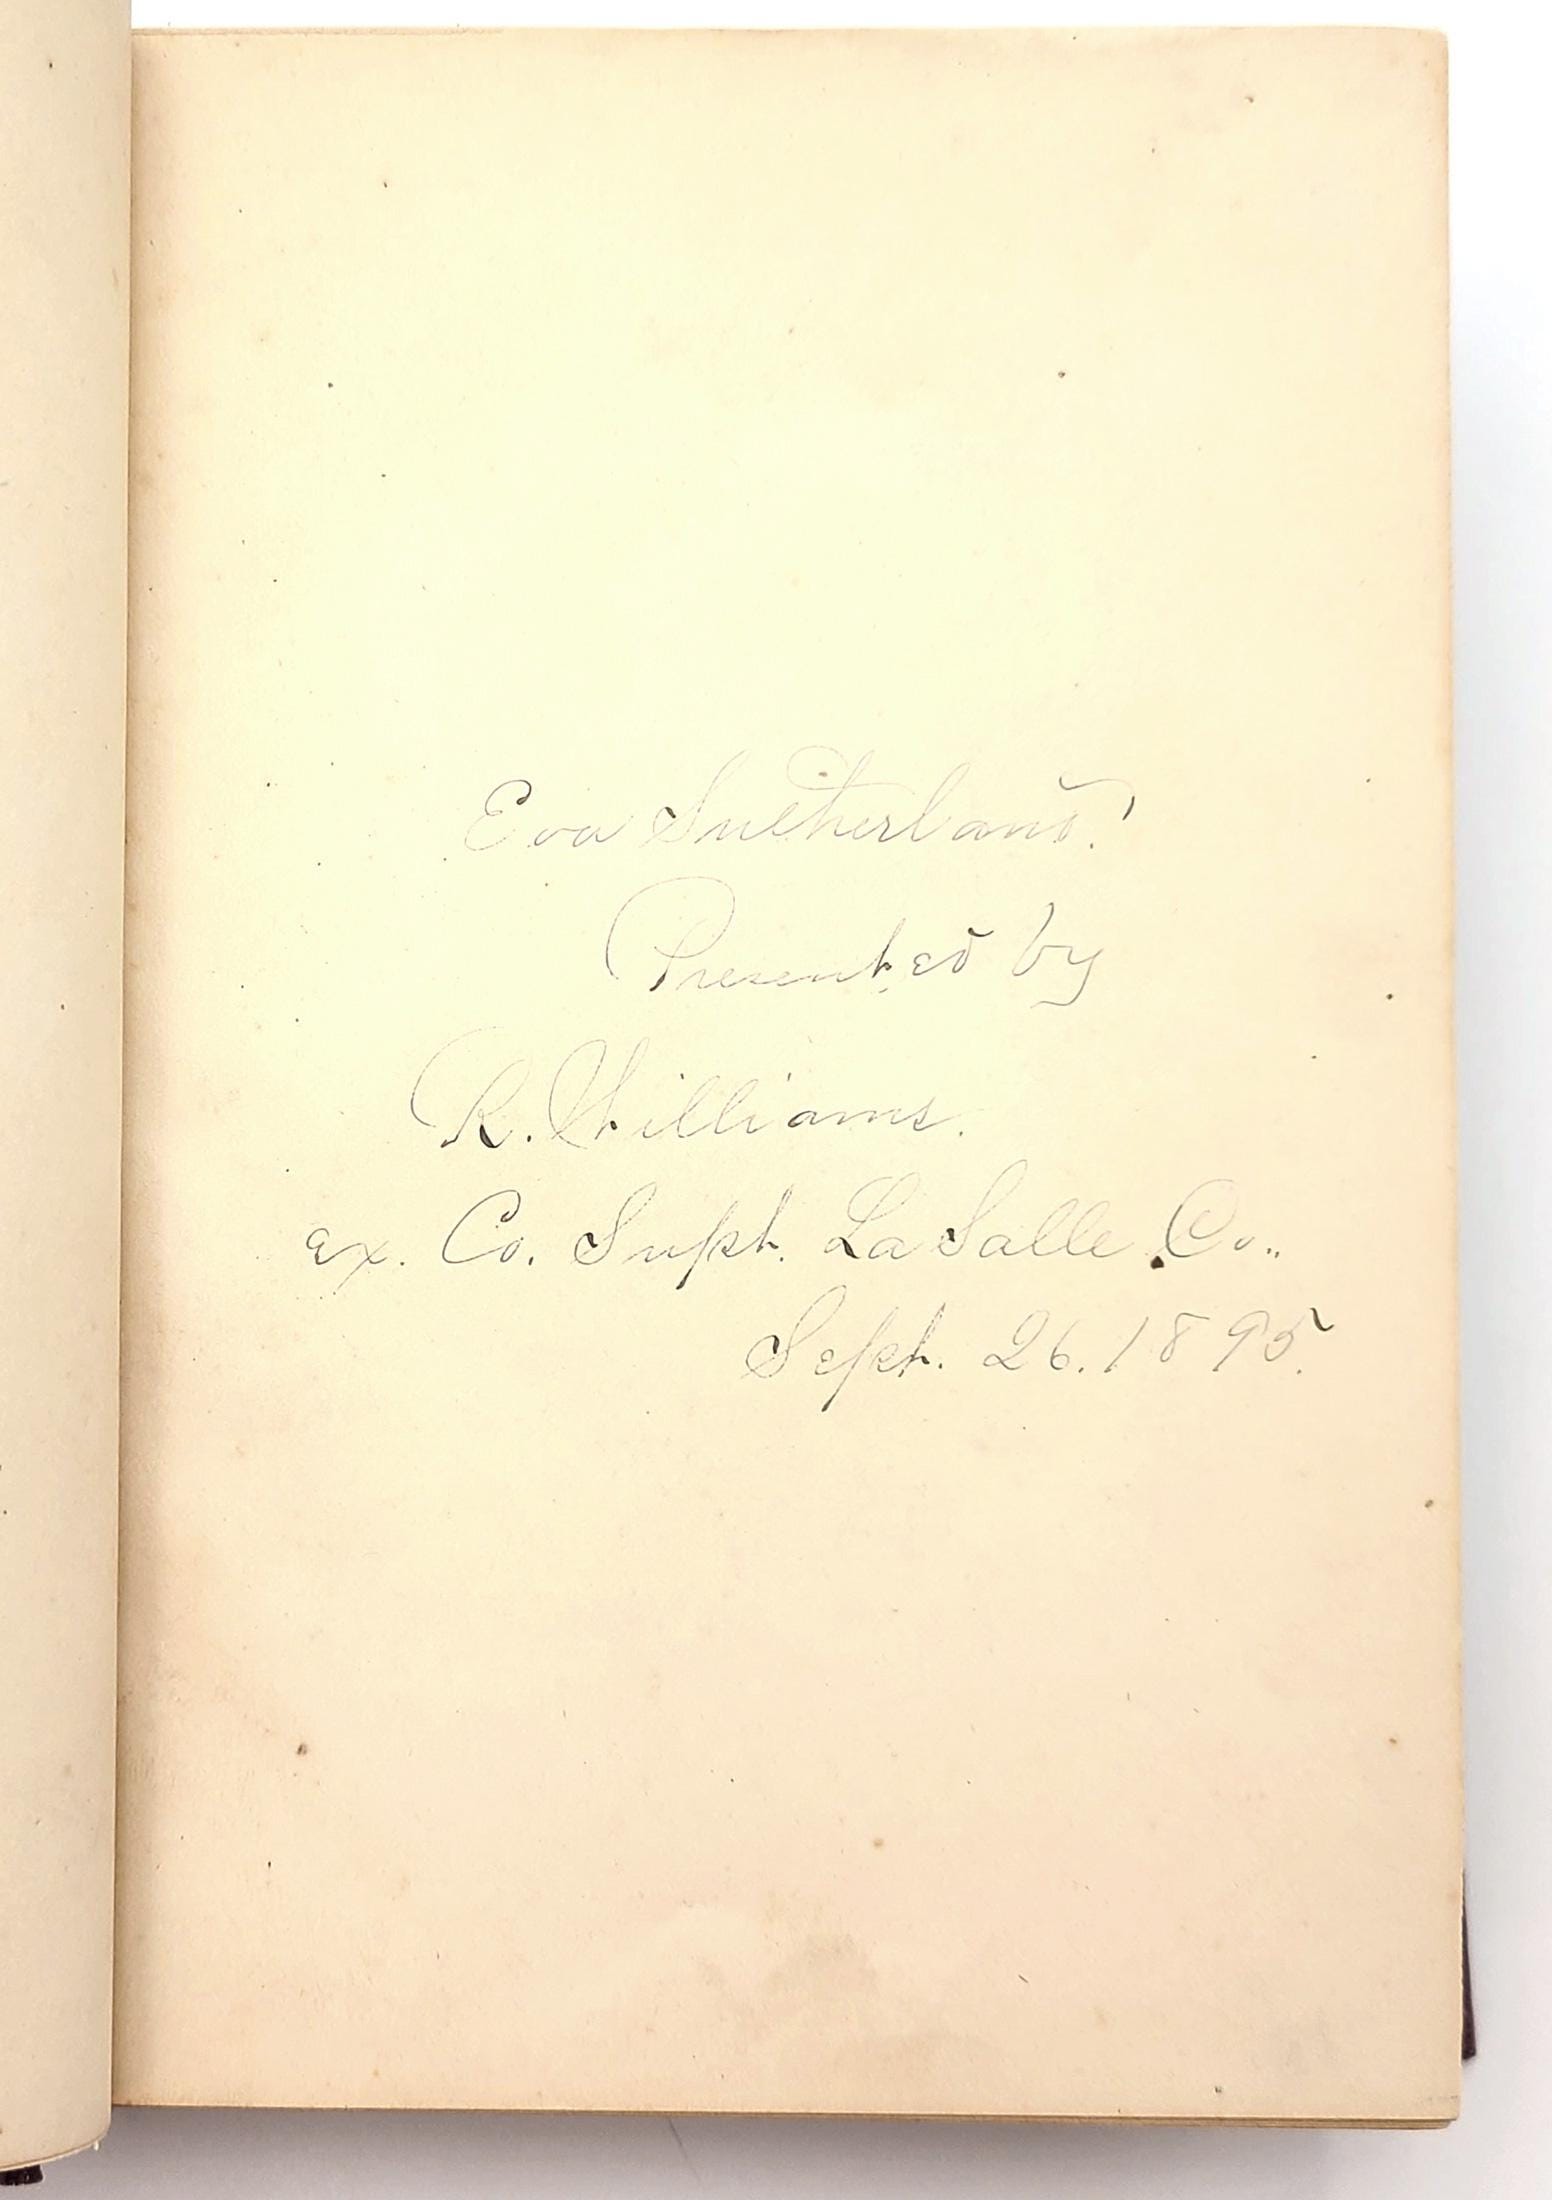 Eva Sutherland.
Presented by
R. Williams.
ex. Co. Supt. LaSalle Co..
Sept. 26. 1895.